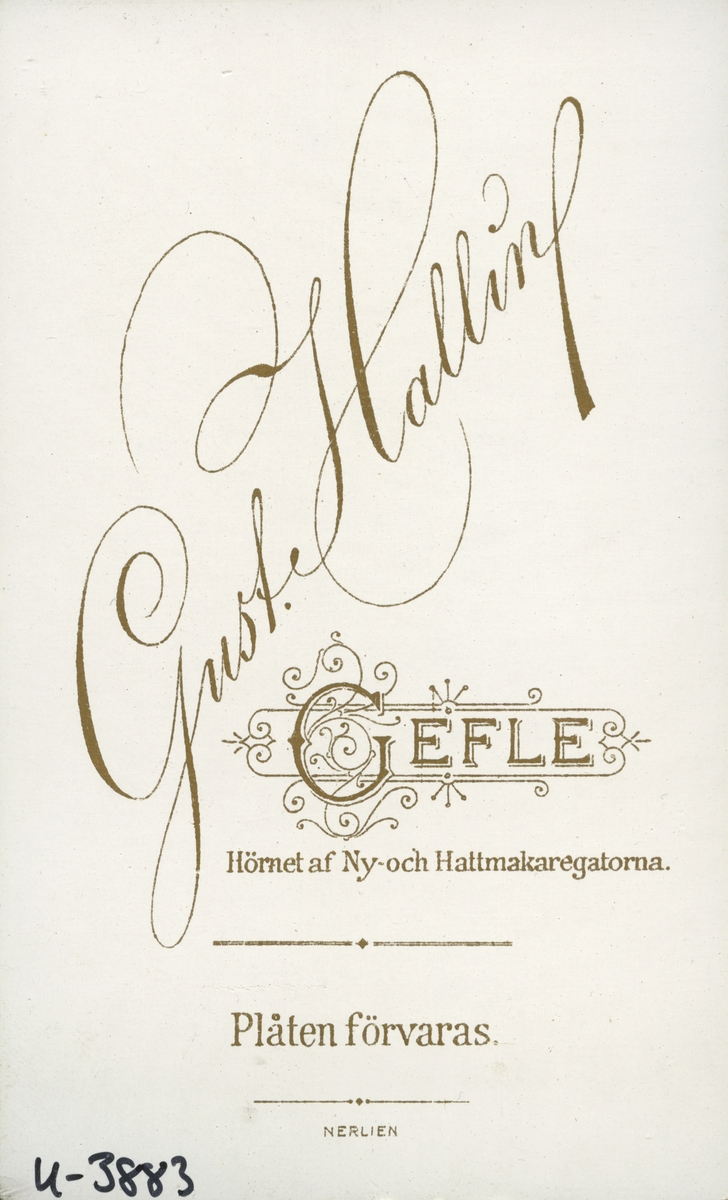 Gust. Hallin
GEFLE
Hörnet af Ny-och Hattmakaregatorna.
Plåten förvaras.
NERLIEN
U-3883